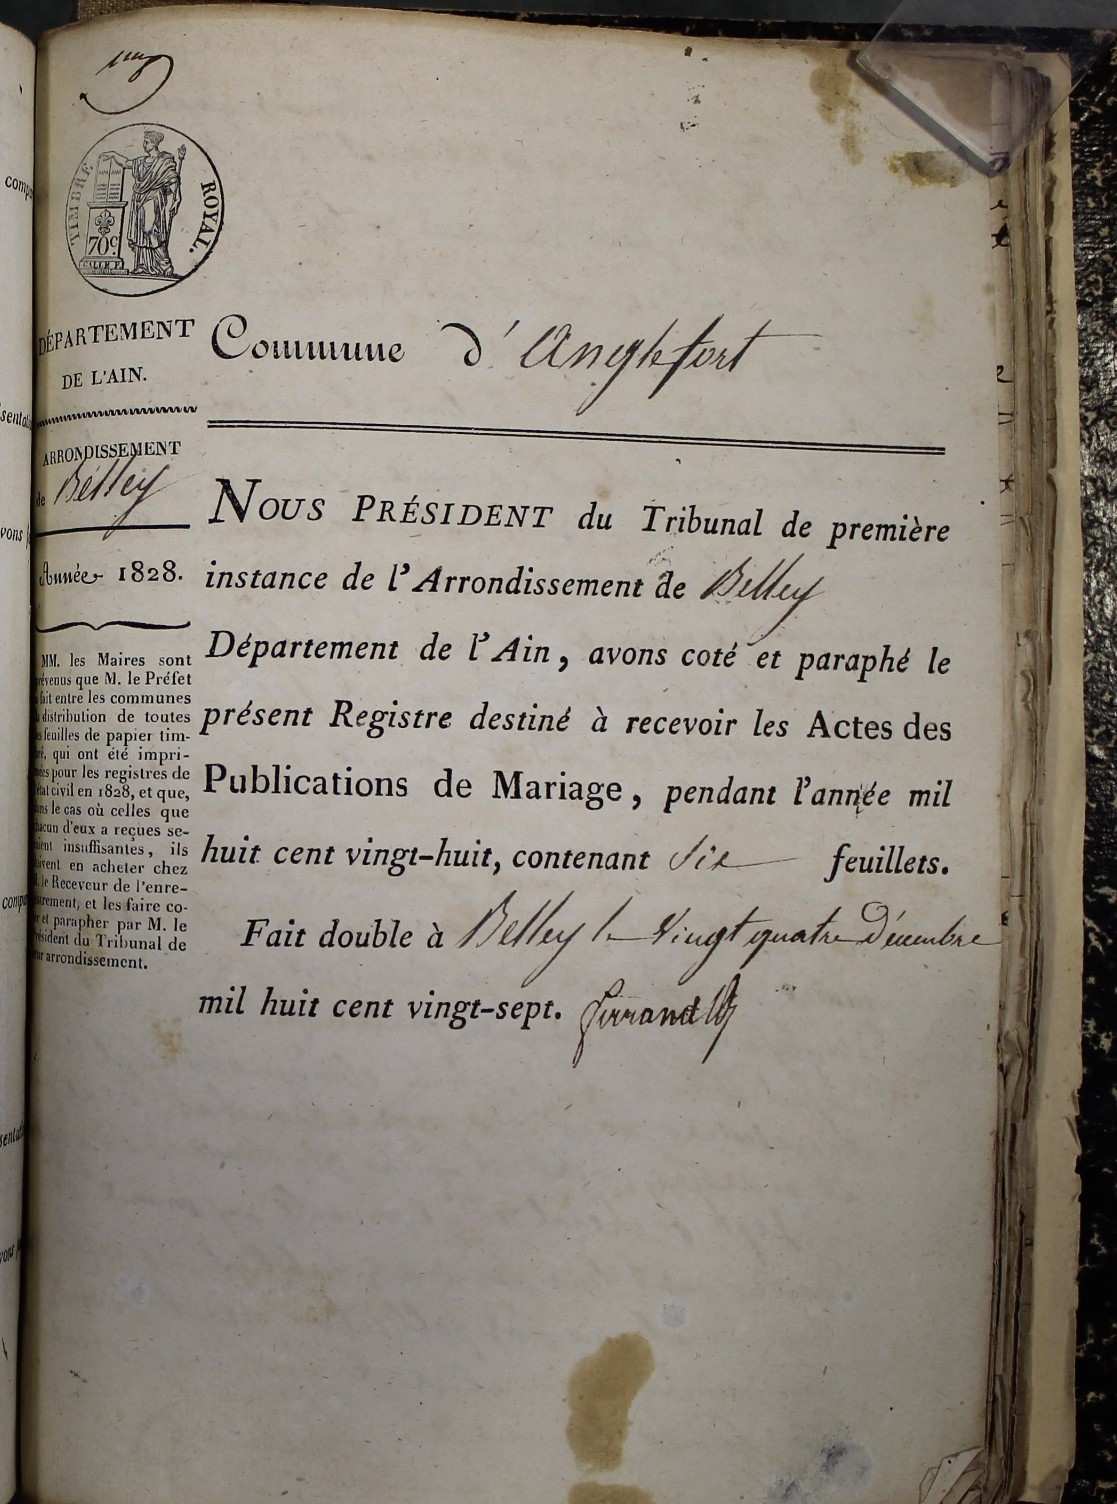 TIMBRE ROYAL.
70c.
DÉPARTEMENT
DE L'AIN.
ARRONDISSEMENT
de Belley
Année 1828.
MM. les Maires sont
prévenus que M. le Préfet
a fait entre les communes
la distribution de toutes
les feuilles de papier tim-
bré, qui ont été impri-
mées pour les registres de
l'état civil en 1828, et que,
dans le cas où celles que
chacun d'eux a reçues se-
raient insuffisantes, ils
doivent en acheter chez
M. le Receveur de l'enre-
gistrement, et les faire co-
ter et parapher par M. le
Président du Tribunal de
leur arrondissement.
Commune d'Anglefort
NOUS PRÉSIDENT du Tribunal de première
instance de l'Arrondissement de Belley
Département de l'Ain, avons coté et paraphé le
présent Registre destiné à recevoir les Actes des
Publications de Mariage, pendant l'année mil
huit cent vingt-huit, contenant Six feuillets.
Fait double à Belley le Vingt quatre Décembre
mil huit cent vingt-sept.